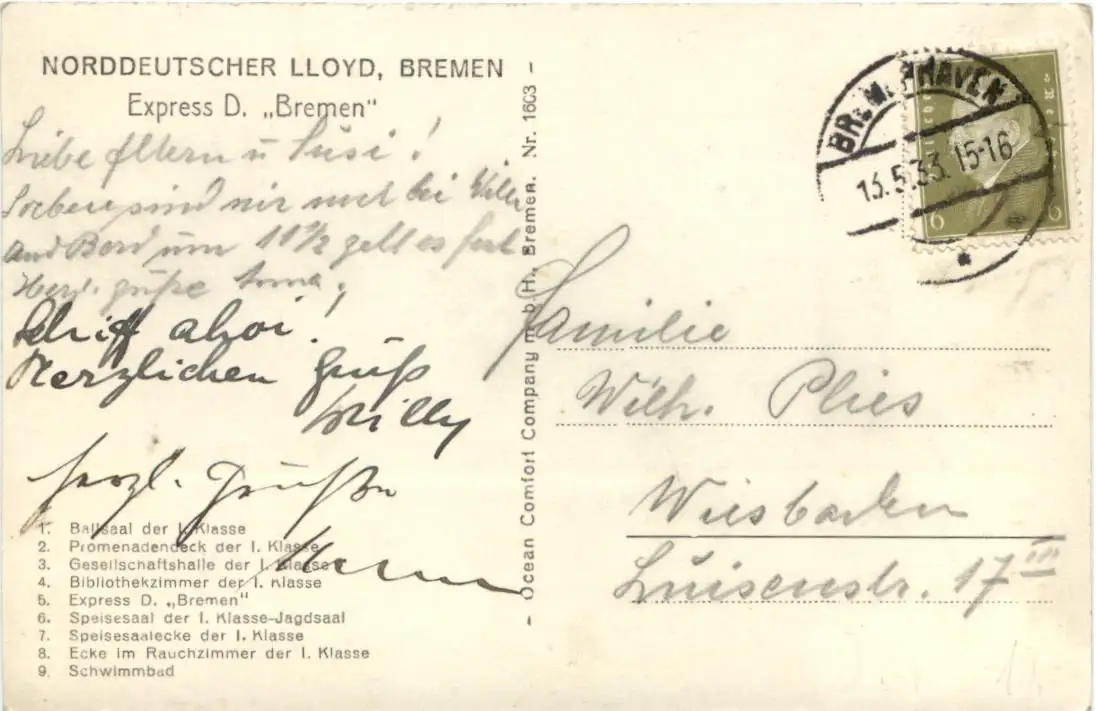 NORDDEUTSCHER LLOYD, BREMEN
Express D. „Bremen"
Liebe Eltern u Susi!
Soeben sind wir bei Willy
Bord um 10½ geht es fort
Herzl. Grüße
Schiff ahoi!
Herzlichen Gruß
Willy
herzl. Grüße
1. Ballsaal der I. Klasse
2. Promenadendeck der I. Klasse
3. Gesellschaftshalle der I. Klasse
4. Bibliothekzimmer der I. Klasse
5. Express D. „Bremen"
6. Speisesaal der I. Klasse-Jagdsaal
7. Speisesaalecke der I. Klasse
8. Ecke im Rauchzimmer der I. Klasse
9. Schwimmbad
Ocean Comfort Company m. b. H., Bremen. Nr. 1603
BREMERHAVEN
13.5.33. 15-16
6 6
Familie
Wilh. Plies
Wiesbaden
Luisenstr. 17 III